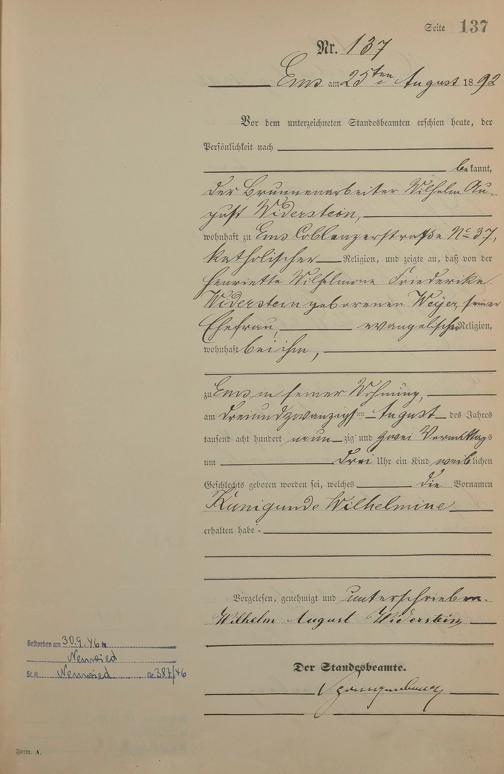 Seite 137
Nr. 137
Ems am 25ten August 1892
Vor dem unterzeichneten Standesbeamten erschien heute, der
Persönlichkeit nach
bekannt,
der Brunnenarbeiter Wilhelm Au-
gust Widerstein,
wohnhaft zu Ems Coblenzerstraße No 37,
katholischer Religion, und zeigte an, daß von der
Henriette Wilhelmine Friederike
Widerstein geborenen Weyer, seiner
Ehefrau, evangelischer Religion,
wohnhaft bei ihm,
zu Ems in seiner Wohnung,
am dreiundzwanzigsten August des Jahres
tausend acht hundert neunzig und zwei Vormittags
um drei Uhr ein Kind weiblichen
Geschlechts geboren worden sei, welches die Vornamen
Kunigunde Wilhelmine
erhalten habe
Vorgelesen, genehmigt und unterschrieben.
Wilhelm August Widerstein
Der Standesbeamte.
Gestorben am 30.9.46
Neuwied
St. A. Neuwied Nr. 387/46
Form. A.